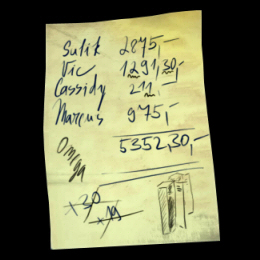 Sulik 2875,-
Vic 1291,30,-
Cassidy 211,-
Marcus 975,-
5352,30,-
Omega
+30